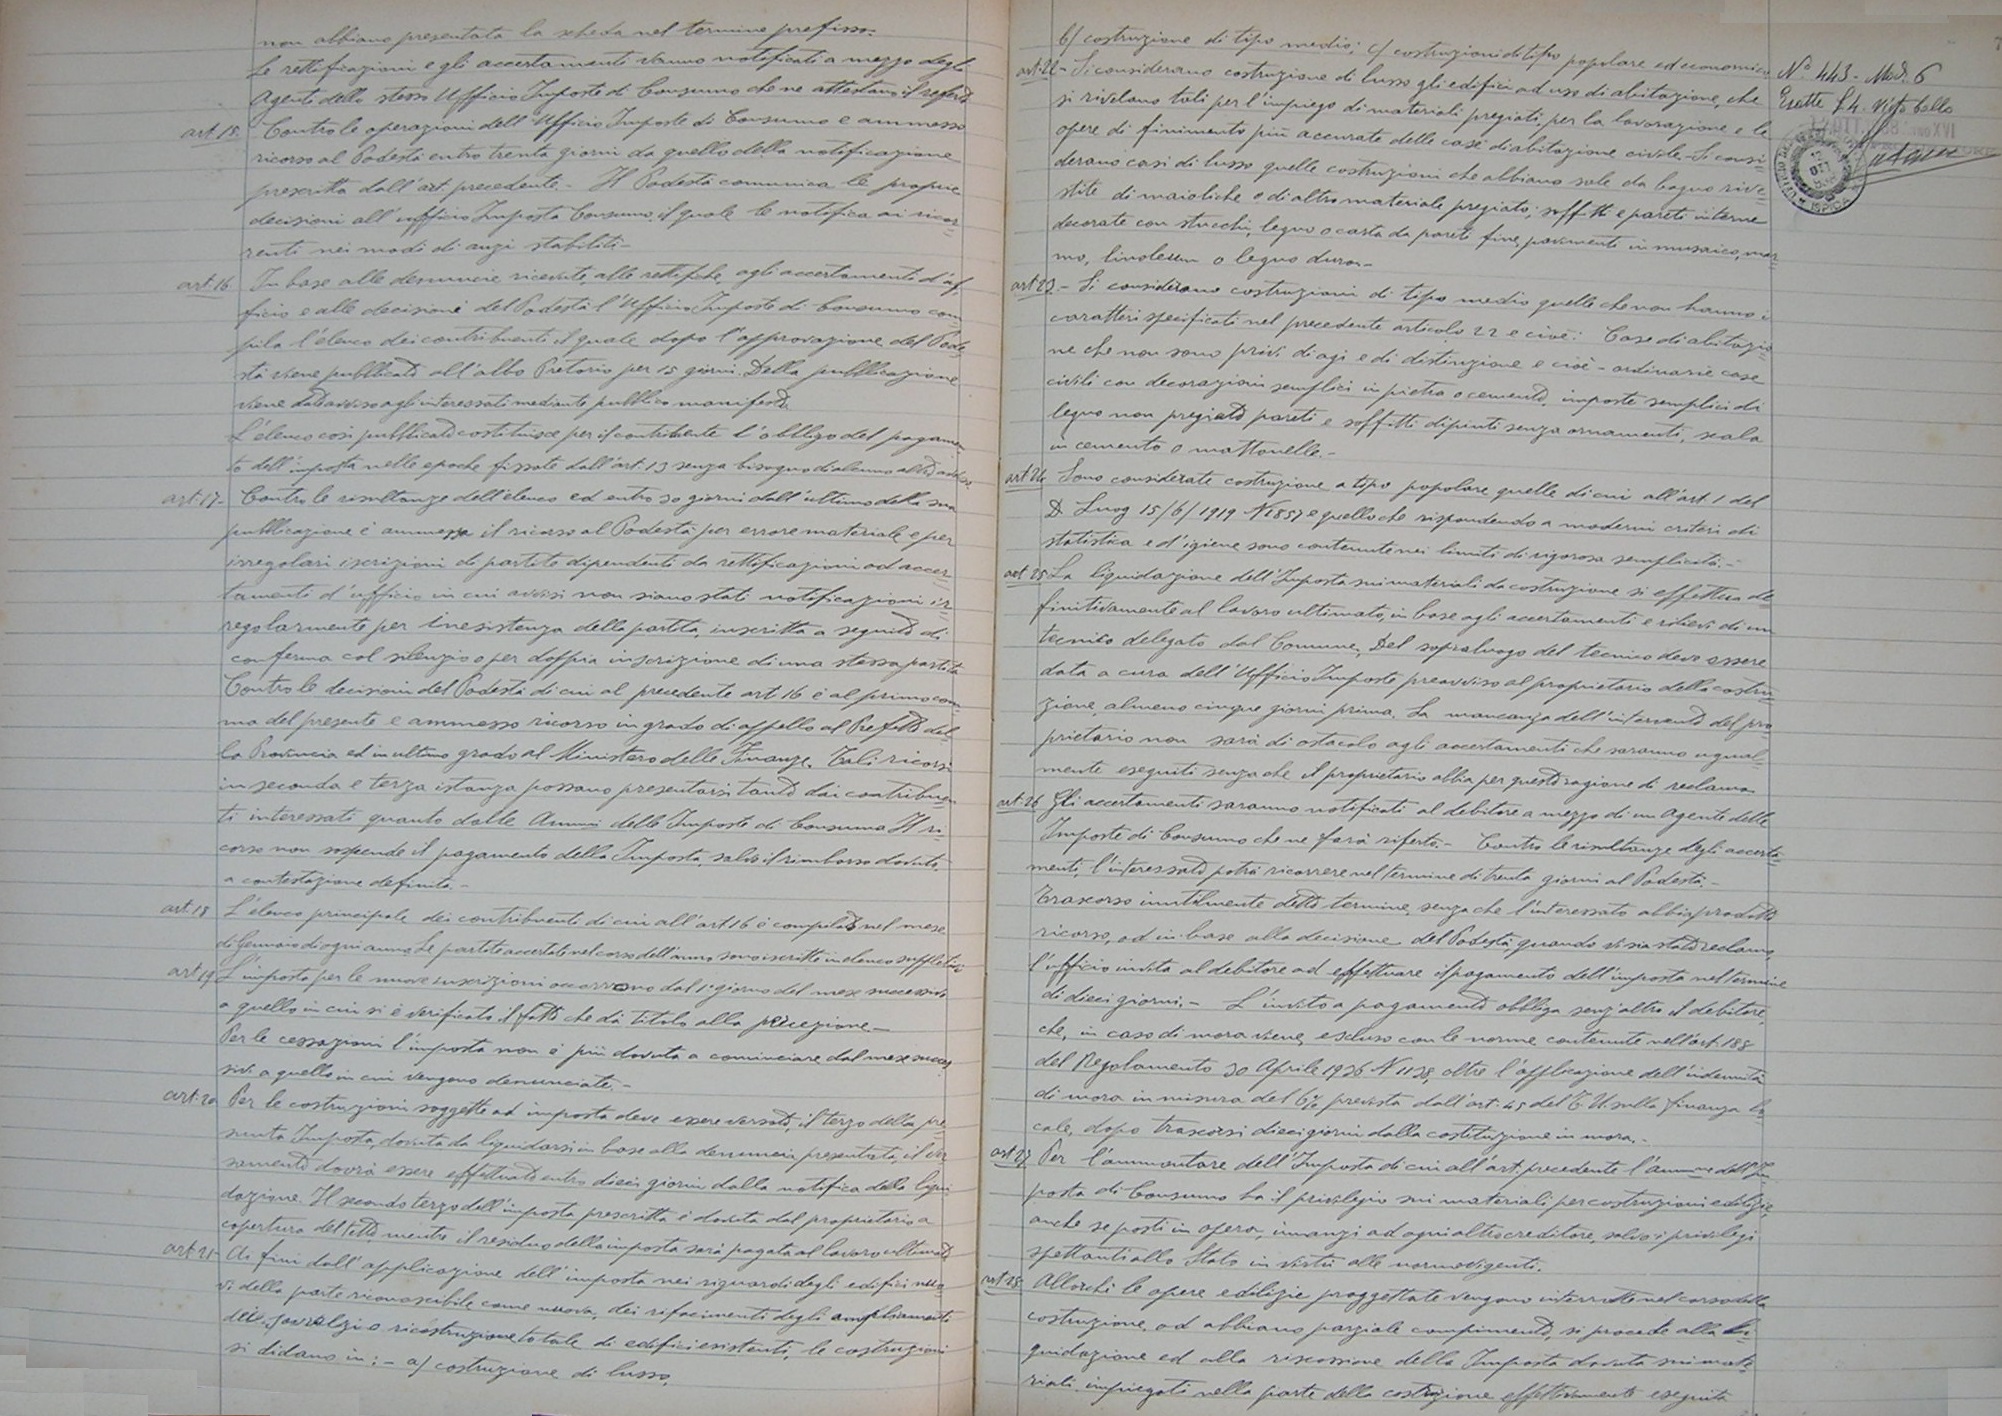 non abbiano presentata la scheda nel termine prefisso.
Le rettificazioni e gli accertamenti vanno notificati a mezzo degli
Agenti dello stesso Ufficio Imposte di Consumo che ne attestano il referto
art. 15. Contro le operazioni dell'Ufficio Imposte di Consumo è ammesso
ricorso al Podestà entro trenta giorni da quello della notificazione
prescritta dall'art. precedente. - Il Podestà comunica le proprie
decisioni all'ufficio Imposta Consumo, il quale le notifica ai ricor-
renti nei modi di anzi stabiliti -
art. 16 In base alle denuncie ricevute, alle rettifiche, agli accertamenti d'uf-
ficio e alle decisioni del Podestà l'Ufficio Imposte di Consumo com-
pila l'elenco dei contribuenti il quale dopo l'approvazione del Pode-
stà viene pubblicato all'albo Pretorio per 15 giorni. Della pubblicazione
viene dato avviso agli interessati mediante pubblico manifesto.
L'elenco così pubblicato costituisce per il contribuente l'obbligo del pagamen-
to dell'imposta nelle epoche fissate dall'art. 13 senza bisogno di alcuno altro avviso.
art. 17 - Contro le risultanze dell'elenco ed entro 30 giorni dall'ultimo della sua
pubblicazione è ammesso il ricorso al Podestà per errore materiale e per
irregolari iscrizioni di partite dipendenti da rettificazioni od accer-
tamenti d'ufficio in cui avvisi non siano stati notificazioni ir-
regolarmente per inesistenza della partita inscritta a seguito di
conferma col silenzio o per doppia inscrizione di una stessa partita
Contro le decisioni del Podestà di cui al precedente art. 16 e al primo com-
ma del presente è ammesso ricorso in grado di appello al Prefetto del-
la Provincia ed in ultimo grado al Ministero delle Finanze. Tali ricorsi
in seconda e terza istanza possono presentarsi tanto dai contribuen-
ti interessati quanto dalle Ammni delle Imposte di Consumo. Il ri-
corso non sospende il pagamento della Imposta, salvo il rimborso dovuto,
a contestazione definita. -
art. 18 L'elenco principale dei contribuenti di cui all'art 16 è compilato nel mese
di Gennaio di ogni anno. Le partite accertate nel corso dell'anno sono iscritte in elenco suppletivo
art 19 L'imposta per le nuove inscrizioni occorrono dal 1° giorno del mese successivo
a quello in cui si è verificato il fatto che dà titolo alla percezione -
Per le cessazioni l'imposta non è più dovuta a cominciare dal mese succes-
sivo a quello in cui vengono denunciate. -
art. 20 Per le costruzioni soggette ad imposta deve essere versato, il terzo della pre-
sunta Imposta, dovuta da liquidarsi in base alla denuncia presentata, il ver-
samento dovrà essere effettuato entro dieci giorni dalla notifica della liqui-
dazione. Il secondo terzo dell'imposta prescritta è dovuta dal proprietario a
copertura del tetto mentre il residuo della imposta sarà pagata al lavoro ultimato
art. 21 - Ai fini dall'applicazione dell'imposta nei riguardi degli edifici nuo-
vi della parte riconoscibile come nuova, dei rifacimenti degli ampliamenti
dei sovralzi o ricostruzione totale di edifici esistenti, le costruzioni
si didano in: - a) costruzione di lusso,
b) costruzione di tipo medio; c) costruzioni di tipo popolare ed economico
art. 22 - Si considerano costruzione di lusso gli edifici ad uso di abitazione, che
si rivelano tali per l'impiego di materiali pregiati, per la lavorazione e le
opere di finimento più accurate delle case di abitazione civile. Si consi-
derano casi di lusso quelle costruzioni che abbiano sale da bagno rive-
stite di maioliche o di altro materiale pregiato; soffitti e pareti interne
decorate con stucchi, legno o carta da pareti fine, pavimenti in musaico, mar-
mo, linoleum o legno duro. -
art 23. - Si considerano costruzioni di tipo medio quelle che non hanno i
caratteri specificati nel precedente articolo 22 e cioè: Case di abitazio-
ne che non sono privi di agi e di distinzione e cioè - ordinarie case
civili con decorazioni semplici in pietra o cemento, imposte semplici di
legno non pregiato pareti e soffitti dipinti senza ornamenti, scala
in cemento o mattonelle. -
art 24 Sono considerate costruzione a tipo popolare quelle di cui all'art. 1 del
D. Luog 15/6/1919 N 1857 e quello che rispondendo a moderni criteri di
statistica e d'igiene sono contenute nei limiti di rigorosa semplicità. -
art. 25 La liquidazione dell'Imposta sui materiali da costruzione si effettua de-
finitivamente al lavoro ultimato, in base agli accertamenti e rilievi di un
tecnico delegato dal Comune, Del sopraluogo del tecnico deve essere
data a cura dell'Ufficio Imposte preavviso al proprietario della costru-
zione, almeno cinque giorni prima. La mancanza dell'intervento del pro-
prietario non sarà di ostacolo agli accertamenti che saranno ugual-
mente eseguiti senza che il proprietario abbia per questo ragione di reclamo
art. 26 Gli accertamenti saranno notificati al debitore a mezzo di un Agente delle
Imposte di Consumo che ne farà riferto. - Contro le risultanze degli accerta-
menti, l'interessato potrà ricorrere nel termine di trenta giorni al Podestà. -
Trascorso inutilmente detto termine, senza che l'interessato abbia prodotto
ricorso, od in base alla decisione del Podestà, quando vi sia stato reclamo,
l'ufficio invita al debitore ad effettuare il pagamento dell'imposta nel termine
di dieci giorni. - L'invito a pagamento obbliga senz'altro il debitore
che, in caso di mora viene, escluso con le norme contenute nell'art. 188
del Regolamento 30 Aprile 1936 N 1138, oltre l'applicazione dell'indennità
di mora in misura del 6% prevista dall'art. 45 del T. U. sulla finanza lo-
cale, dopo trascorsi dieci giorni dalla costituzione in mora. -
art 27 Per l'ammontare dell'Imposta di cui all'art. precedente l'ammne dell'Im-
posta di Consumo ha il privilegio sui materiali per costruzioni edilizie
anche se posti in opera, innanzi ad ogni altro creditore, salvo i privilegi
spettanti allo Stato in virtù alle norme vigenti.
art 28. Allorchè le opere edilizie progettate vengono interrotte nel corso della
costruzione, od abbiano parziale compimento, si procede alla li-
quidazione ed alla riscossione della Imposta dovuta sui mate-
riali impiegati nella parte della costruzione effettivamente eseguita
N° 443 - Mod. 6
Esatte £ 4. Visto bollo
ISPICA